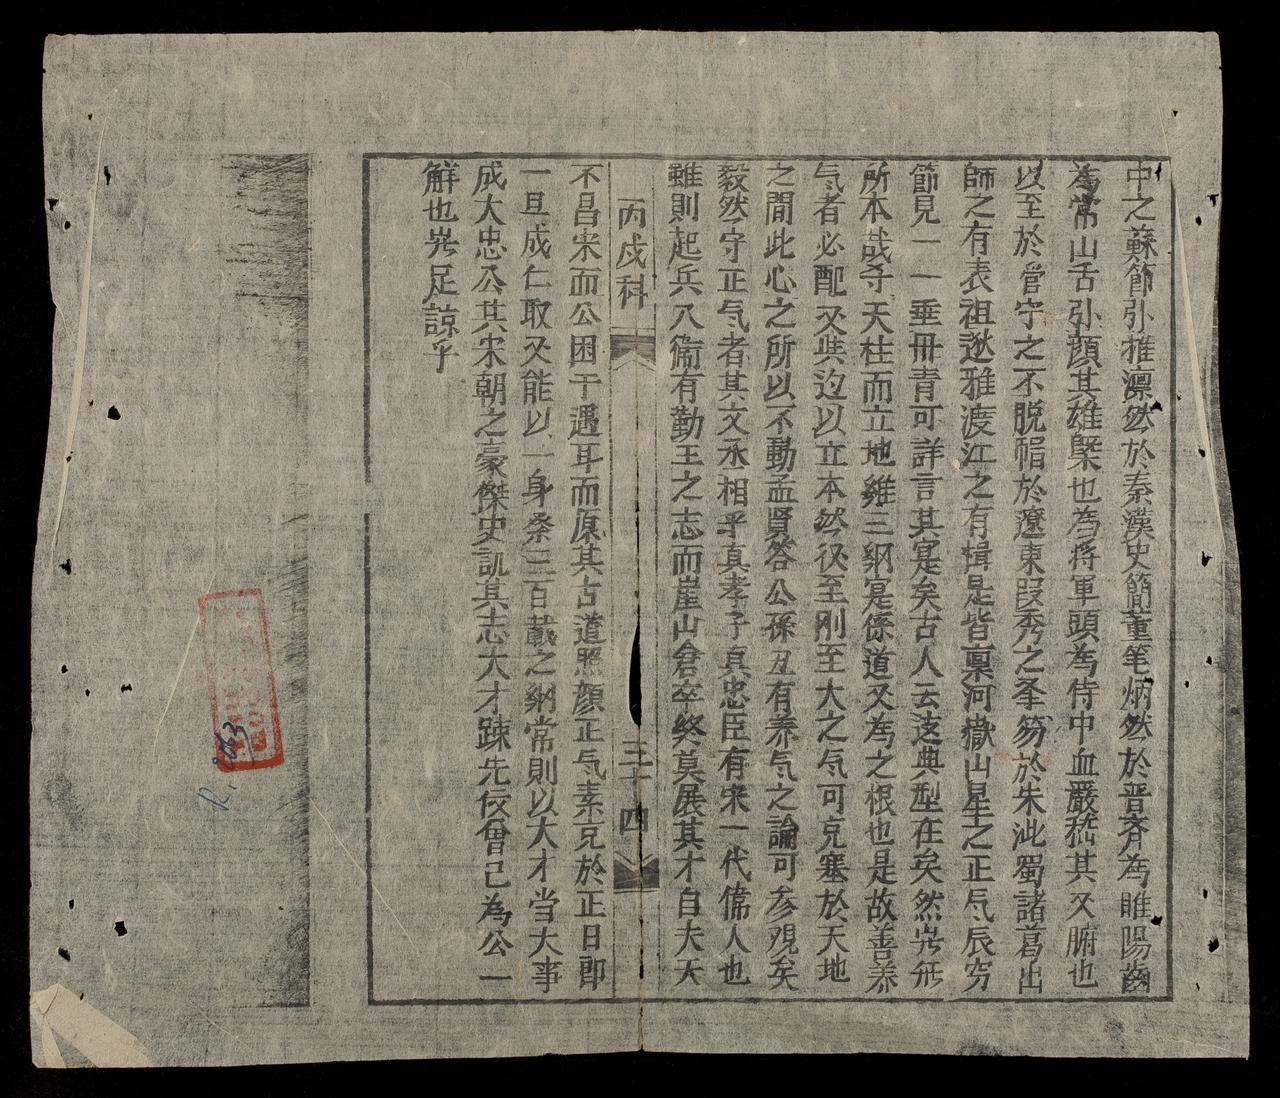 中之蘇節引椎凛然於秦漢史簡董笔炳然於晋齊為睢陽齒
為常山舌引顔其雄槩也為將軍頭為侍中血嚴嵇其又腑也
以至於管守之不脱帽於遼東段秀之奉笏於朱泚蜀諸葛出
師之有表祖逖雅渡江之有楫是皆禀河嶽山星之正气辰穷
節見一一垂冊青可詳言其寔矣古人云这典型在矣然豈無
所本哉夺天柱而立地維三綱寔係道义為之根也是故善养
气者必配义與道以立本然後至刚至大之气可克塞於天地
之間此心之所以不動孟賢答公孫丑有养气之論可参观矣
毅然守正气者其文丞相乎真孝子真忠臣有宋一代偉人也
雖則起兵入衞有勤王之志而崖山倉卒終莫展其才自夫天
丙戌科
三十四
不昌宋而公困于遇耳而原其古道照顔正气素克於正日即
一旦成仁取义能以一身桑三百載之綱常則以大才当大事
成大忠公其宋朝之豪傑史訊其志大才踈先佼曾已為公一
解也豈足諒乎
R.1983